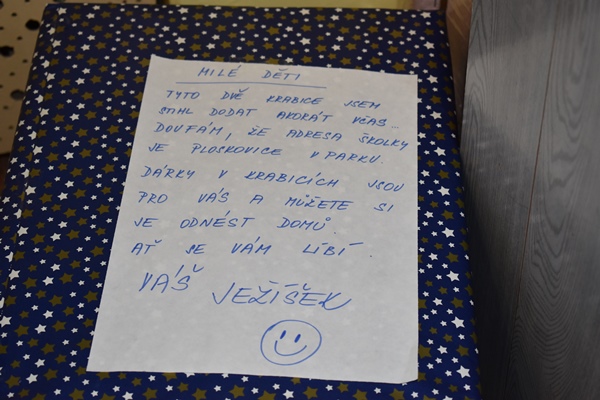 MILÉ DĚTI
TYTO DVĚ KRABICE JSEM
STIHL DODAT AKORÁT VČAS...
DOUFÁM, ŽE ADRESA ŠKOLKY
JE PLOSKOVICE V PARKU.
DÁRKY V KRABICÍCH JSOU
PRO VÁS A MŮŽETE SI
JE ODNÉST DOMŮ
AŤ SE VÁM LÍBÍ
VÁŠ JEŽÍŠEK